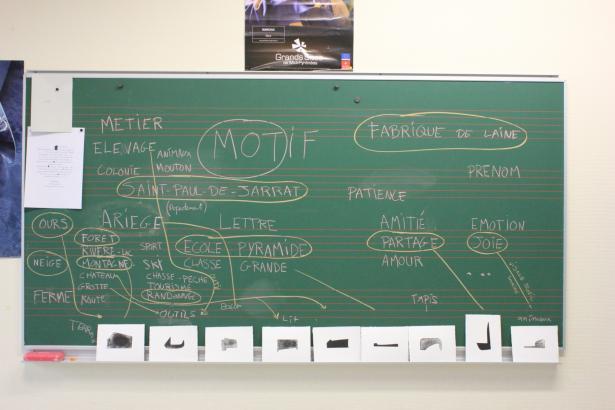 Grands Sites
de Midi-Pyrénées
METIER
MOTIF
FABRIQUE DE LAINE
ELEVAGE
ANIMAUX
COLONIE
MOUTON
PRENOM
SAINT-PAUL-DE-JARRAT
PATIENCE
ARIEGE
LETTRE
AMITIÉ
EMOTION
OURS
FORET
SPORT
ECOLE PYRAMIDE
PARTAGE
JOIE
RIVIERE
NEIGE
MONTAGNE
SKI
CLASSE
GRANDE
AMOUR
...
CHATEAU
CHASSE-PÊCHE
GROTTE
TOURISME
FERME
ROUTE
RANDONNÉE
TAPIS
OUTILS
LIT